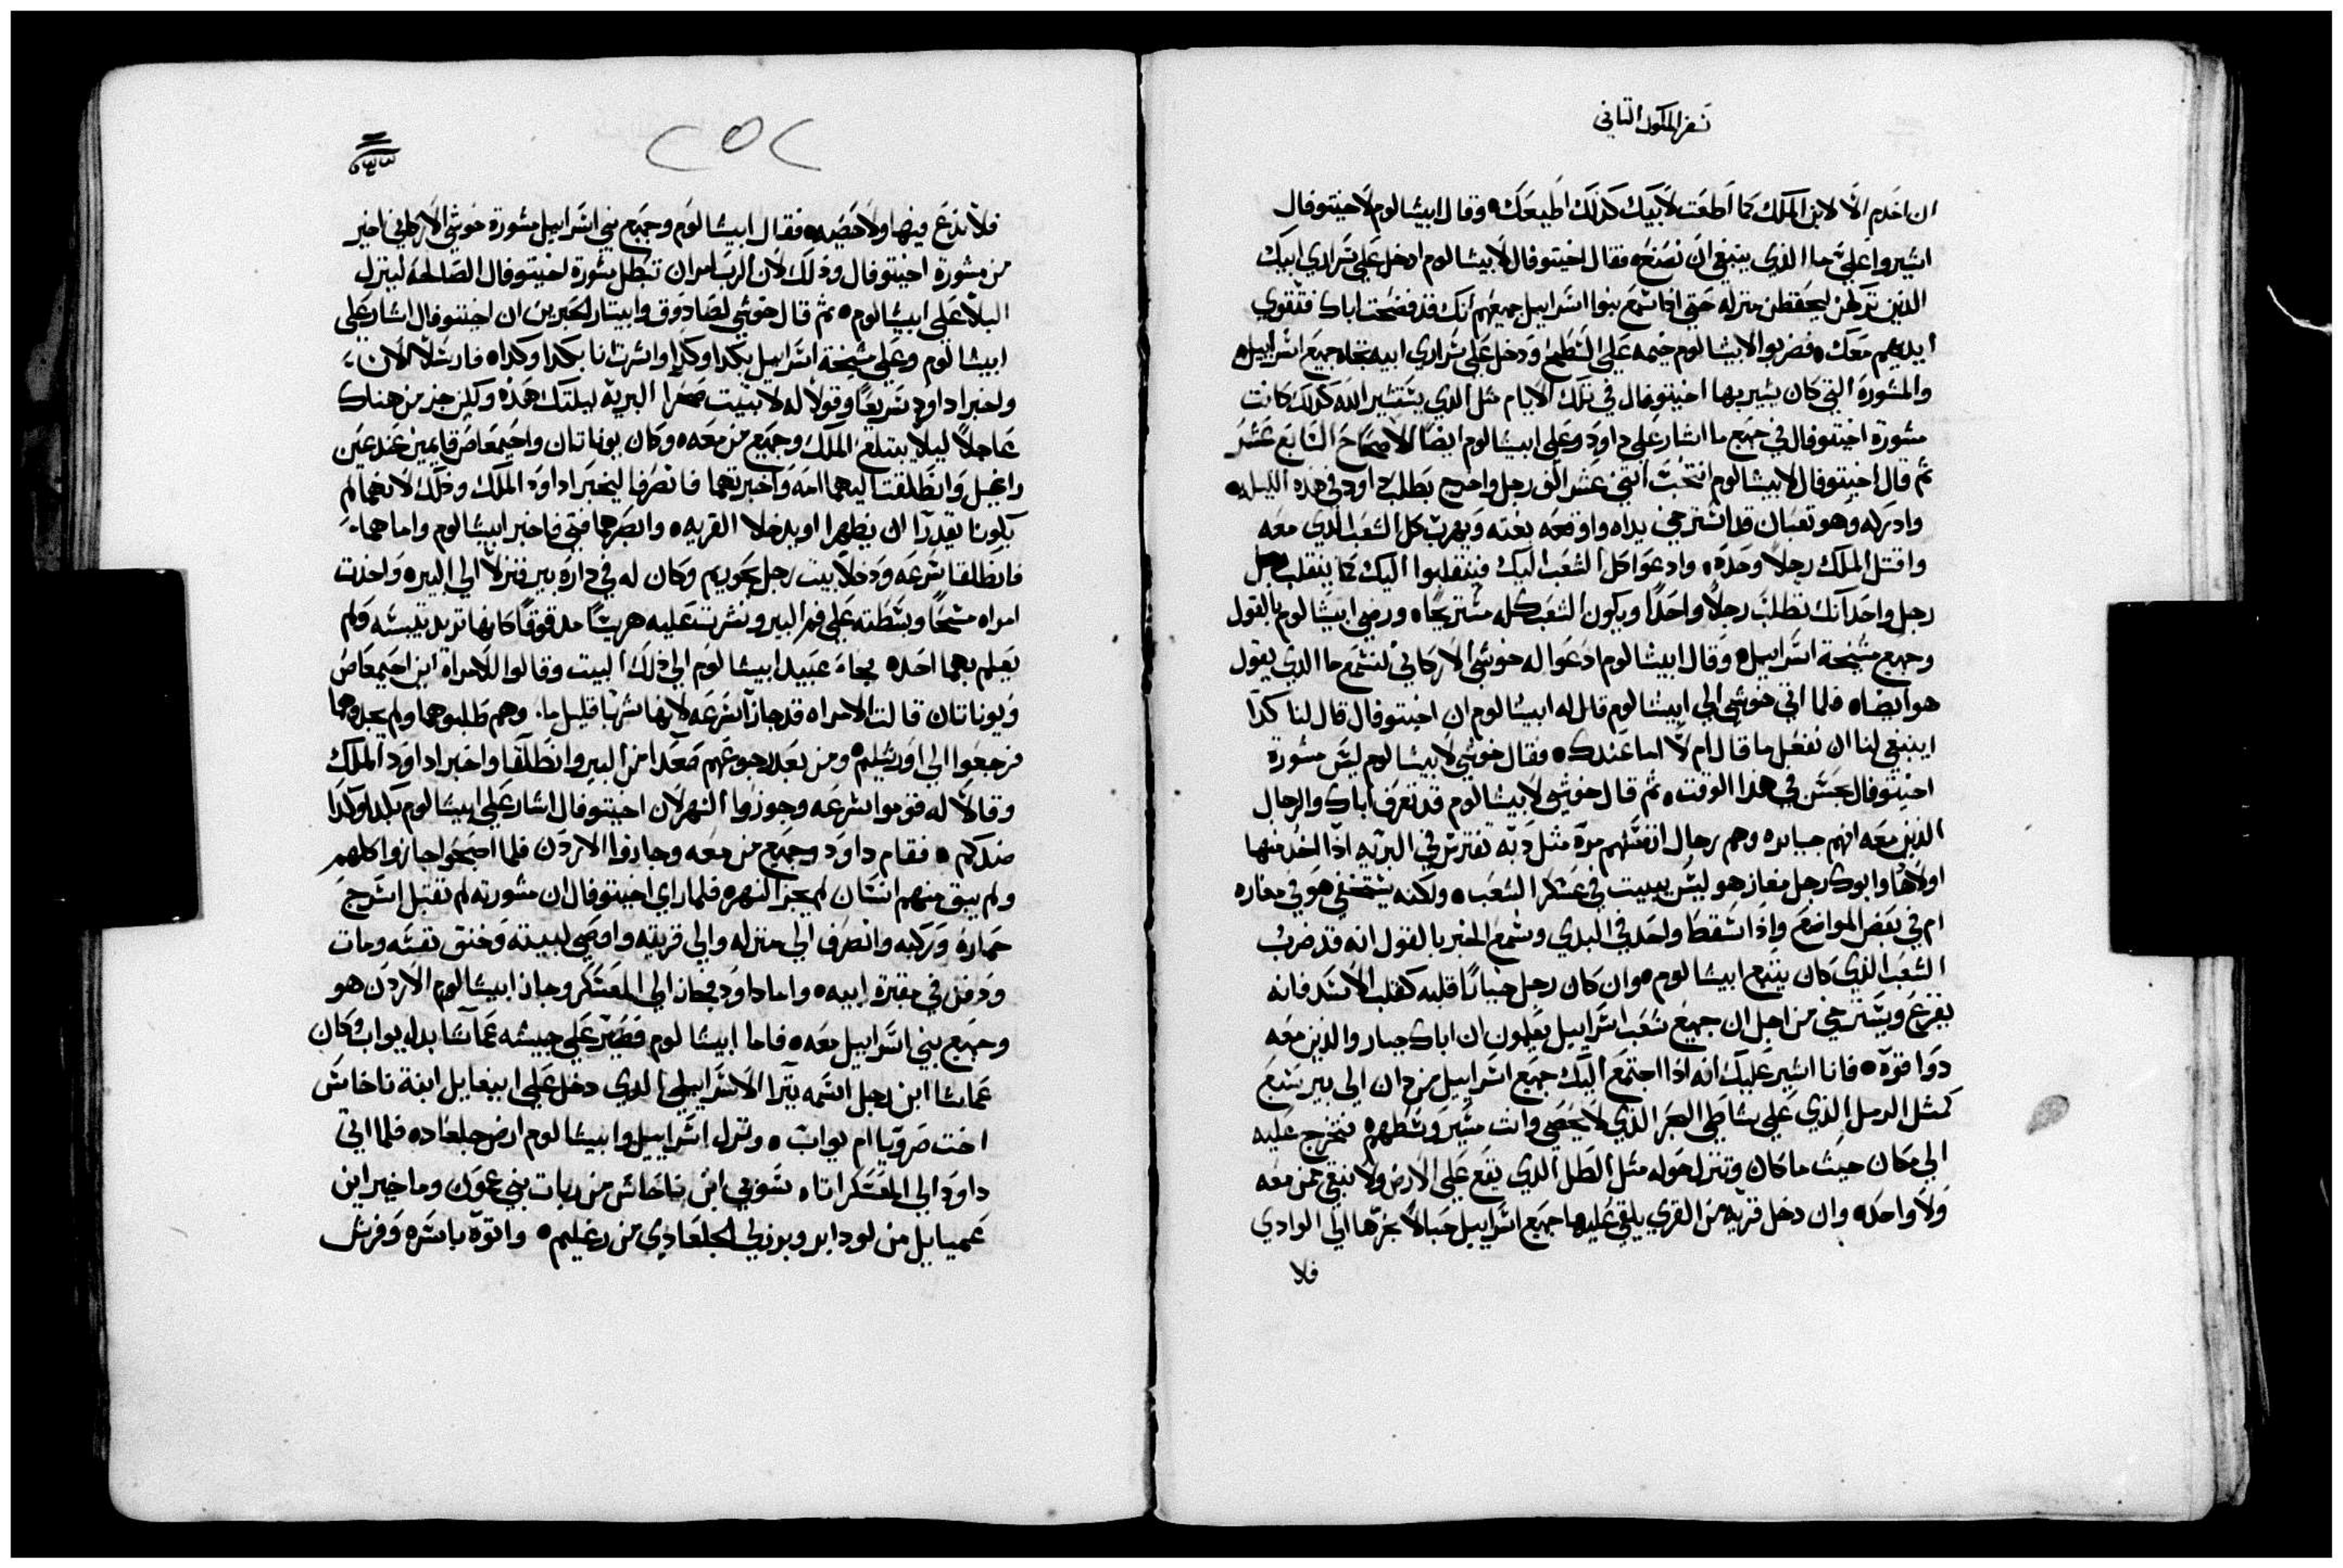 سفر الملوك الثاني
ان اخدم الا لابن الملك كما اطعت لابيك كذلك اطيعك ٥ وقال ابيشالوم لاخيتوفال
اشيروا علي ما الذي ينبغي ان نصنع ٥ فقال اخيتوفال لابيشالوم ادخل علي سراري ابيك
الذين تركهن ليحفظن منزله حتي اذا سمع بنوا اسراييل جميعهم انك قد فضحت اباك فتقوي
ايديهم معك ٥ فضربوا لابيشالوم خيمه علي السطح ودخل علي سراري ابيه تجاه جميع اسراييل ٥
والمشورة التي كان يشير بها اخيتوفال في تلك الايام مثل الذي يستشير الله كذلك كانت
مشورة اخيتوفال في جميع ما اشار علي داود وعلي ابيشالوم ايضا الاصحاح السابع عشر
ثم قال اخيتوفال لابيشالوم انتخب اثني عشر الف رجل واخرج بطلب داود في هذه الليله ٥
وادركه وهو تعبان قد استرخي يداه واوقعه بغته ويهرب كل الشعب الذي معه
واقتل الملك رجلا وحده ٥ وادعوا كل الشعب اليك فينقلبوا اليك كما ينقلب رجل
رجل واحد انك تطلب رجلا واحدا ويكون الشعب كله مستريحا ٥ ورضي ابيشالوم بالقول
وجميع مشيخة اسراييل ٥ وقال ابيشالوم ادعوا له حوشي الاركاني لنسمع ما الذي يقول
هو ايضا ٥ فلما اتي حوشي الي ابيشالوم قال له ابيشالوم ان اخيتوفال قال لنا كدا
اينبغي لنا ان نفعل ما قال ام لا اما عندك ٥ فقال حوشي لابيشالوم ليس مشورة
اخيتوفال بحسن في هدا الوقت ٥ ثم قال حوشي لابيشالوم قد تعرف اباك والرجال
الذين معه انهم جبابره وهم رجال انفسهم مرة مثل دبه تفترس في البريه اذا اخذ منها
اولادها وابوك رجل مغاز هو ليس يبيت في عسكر الشعب ٥ ولكنه يستخفي هو في مغاره
ام في بعض المواضع واذا سقط واحد في البدي وسمع الخبر بالقول انه قد ضرب
الشعب الذي كان يتبع ابيشالوم ٥ وان كان رجل جبانا قلبه كقلب الاسد فانه
يفزع ويسترخي من اجل ان جميع شعب اسراييل يعلمون ان اباك جبار والذين معه
دوا قوة ٥ فانا اشير عليك انه اذا اجتمع اليك جميع اسراييل من دان الي بير سبع
كمثل الرمل الذي علي شاطي البحر الذي لا يحصي وانت تسير وسطهم ٥ فنخرج عليه
الي مكان حيث ما كان وننزل حوله مثل الطل الذي يقع علي الارض ولا نبقي ممن معه
ولا واحد ٥ وان دخل قرية من القري يلقي عليها جميع اسراييل حبالا نجرها الي الوادي
فلا
٢٥٢
فلا ندع فيها ولا حصيه ٥ فقال ابيشالوم وجميع بني اسراييل مشورة حوشي الاركاني اخير
من مشورة اخيتوفال وذلك لان الرب امر ان تبطل مشورة اخيتوفال الصالحة لينزل
البلا علي ابيشالوم ٥ ثم قال حوشي لصادوق وابيتار الحبرين ان اخيتوفال اشار علي
ابيشالوم وعلي مشيخة اسراييل بكدا وكدا واشرت انا بكدا وكدا ٥ فارسلا الان
واخبرا داود سريعا وقولا له لا تبيت صحرا البرية ليلتك هذه ولكن جز من هناك
عاجلا ليلا يبتلع الملك وجميع من معه ٥ وكان يوناتان واخيمعاص قايمين عند عين
راغيل وانطلقت اليهما امه واخبرتهما فانصرفا ليخبرا داود الملك وذلك لانهما لم
يكونا يقدرا ان يظهرا او يدخلا القريه ٥ وابصرهما فتي فاخبر ابيشالوم واما هما
فانطلقا بسرعه ودخلا بيت رجل بحوريم وكان له في داره بير فنزلا الي البير ٥ واخذت
امراه مسحا وبسطته علي فم البير ونشرت عليه هريسا مدقوقا كانها تريد تيبسه ولم
يعلم بهما احد ٥ فجاء عبيد ابيشالوم الي ذلك البيت وقالوا للامراة اين اخيمعاص
ويوناتان قالت الامراه قد جازا بسرعه لانها شربا قليل ما وهم طلبوهما ولم يجدوهما
فرجعوا الي اورشليم ٥ ومن بعد رجوعهم صعدا من البير وانطلقا واخبرا داود الملك
وقالا له قوموا بسرعه وجوزوا النهر لان اخيتوفال اشار علي ابيشالوم بكدا وكدا
ضدكم ٥ فقام داود وجميع من معه وجازوا الاردن فلما اصبحوا جازوا كلهم
ولم يبق منهم انسان لم يجز النهر ٥ فلما راي اخيتوفال ان مشورته لم تقبل اسرج
حماره وركبه وانصرف الي منزله والي قريته واوصي لبيته وخنق نفسه ومات
ودفن في مقبرة ابيه ٥ واما داود فجاز الي المعسكر وجاز ابيشالوم الاردن هو
وجميع بني اسراييل معه ٥ فاما ابيشالوم فصير علي جيشه عماسا بدل يواب وكان
عماسا ابن رجل اسمه يترا الاسراييلي الدي دخل علي ابيغايل ابنة ناحاس
اخت صرويا ام يواب ٥ ونزل اسراييل وابيشالوم ارض جلعاد ٥ فلما اتي
داود الي المعسكر اتاه شوبي ابن ناحاش من ربات بني عمون وماخير ابن
عمياييل من لودابر وبرزلي الجلعادي من رغليم ٥ واتوه باسره وفرش